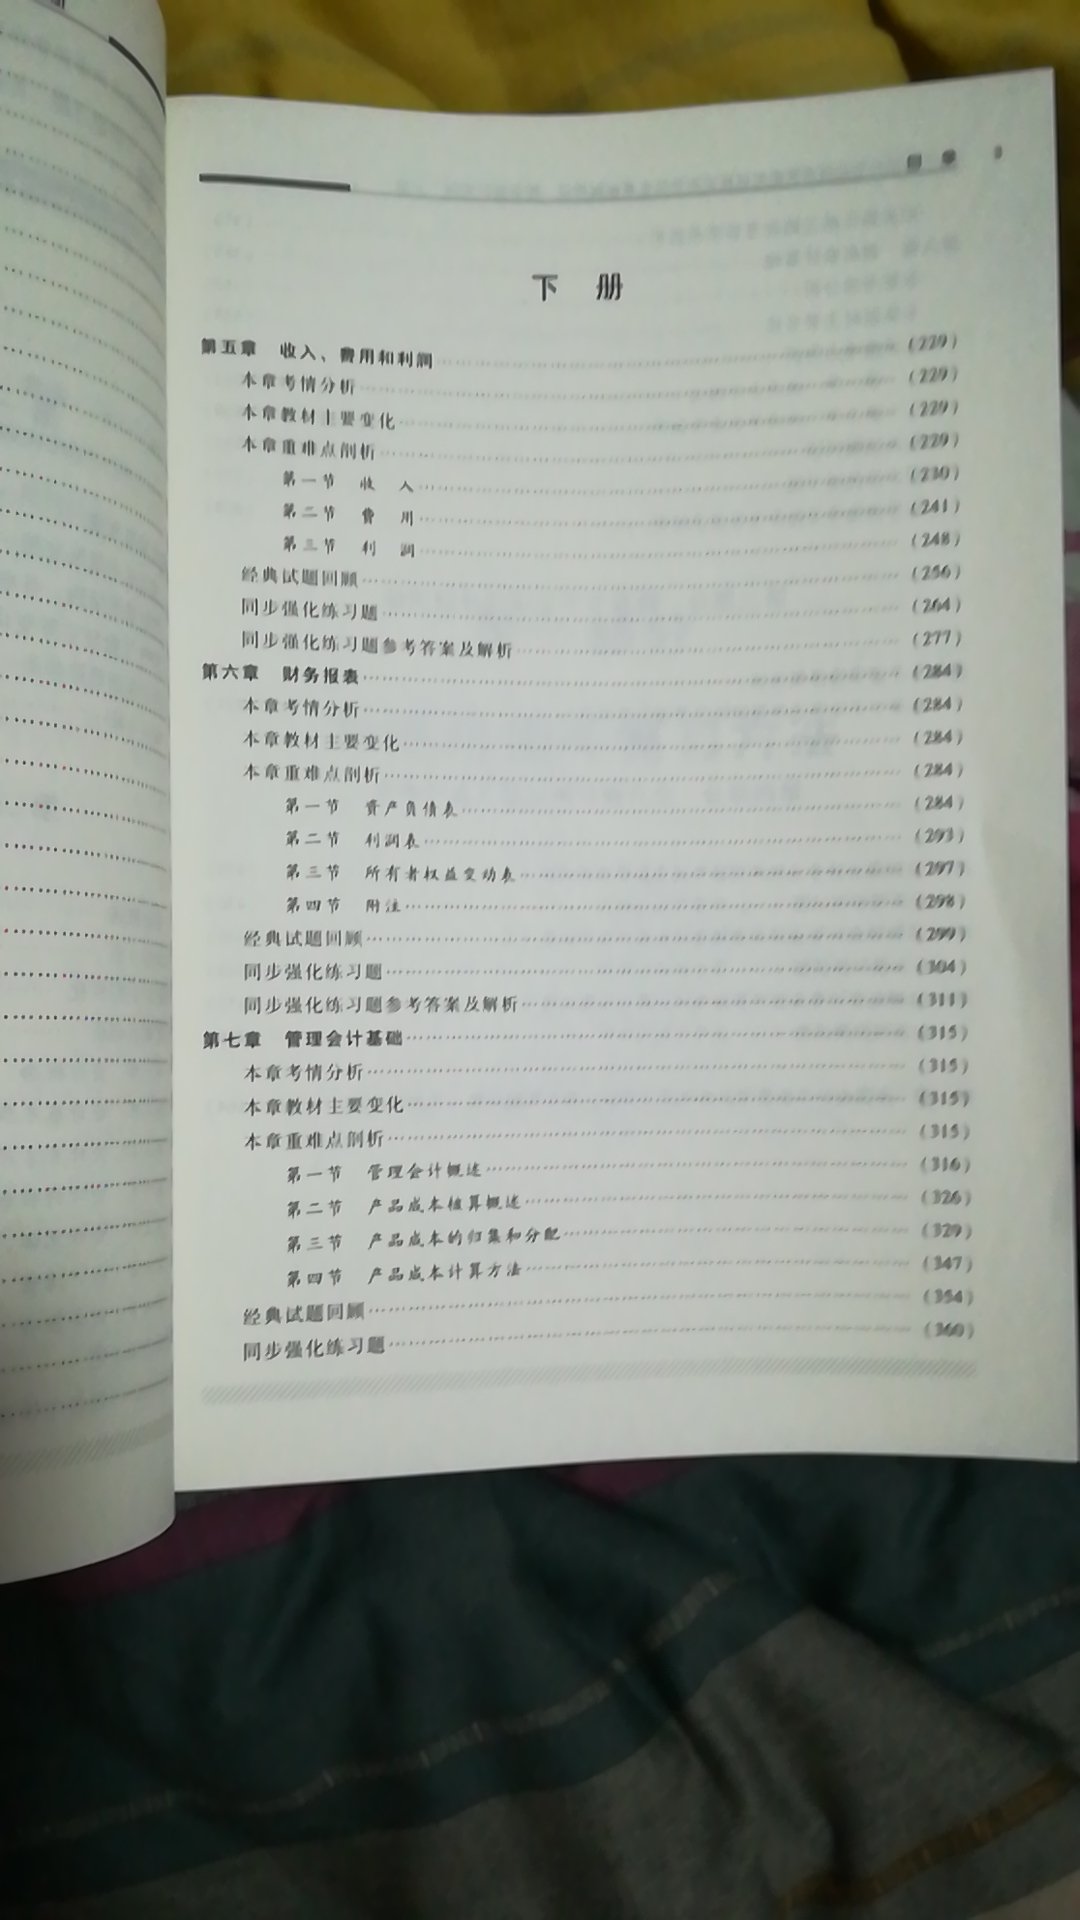 目 录
下 册
第五章 收入、费用和利润……(229)
本章考情分析……(229)
本章教材主要变化……(229)
本章重难点剖析……(229)
第一节 收 入……(230)
第二节 费 用……(241)
第三节 利 润……(248)
经典试题回顾……(256)
同步强化练习题……(264)
同步强化练习题参考答案及解析……(277)
第六章 财务报表……(284)
本章考情分析……(284)
本章教材主要变化……(284)
本章重难点剖析……(284)
第一节 资产负债表……(284)
第二节 利润表……(293)
第三节 所有者权益变动表……(297)
第四节 附注……(298)
经典试题回顾……(299)
同步强化练习题……(304)
同步强化练习题参考答案及解析……(311)
第七章 管理会计基础……(315)
本章考情分析……(315)
本章教材主要变化……(315)
本章重难点剖析……(315)
第一节 管理会计概述……(316)
第二节 产品成本核算概述……(326)
第三节 产品成本的归集和分配……(329)
第四节 产品成本计算方法……(347)
经典试题回顾……(354)
同步强化练习题……(360)